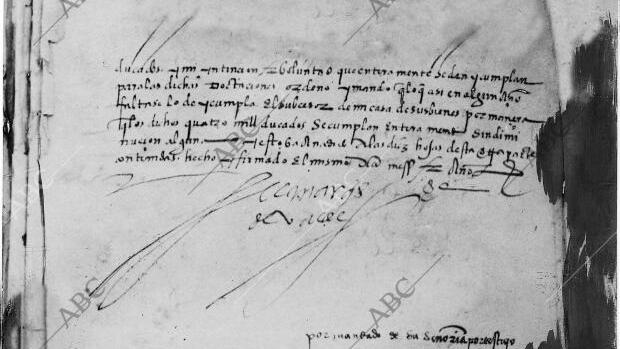 ducados y mi yntincion e boluntad que enteramente se den y cumplan
para las dichas dotaciones ordeno y mando q lo q asi en algun año
faltase lo de y cumpla el subcesor de mi casa de sus bienes por manera
q los dichos quatro mill ducados se cumplan enteramente sin dimi
nucion alguna
contenidas hecho y firmado el mismo dia mes y año
el marqs
por mandado de su señoria por testigo
ABC
ABC
ABC
ABC
ABC
ABC